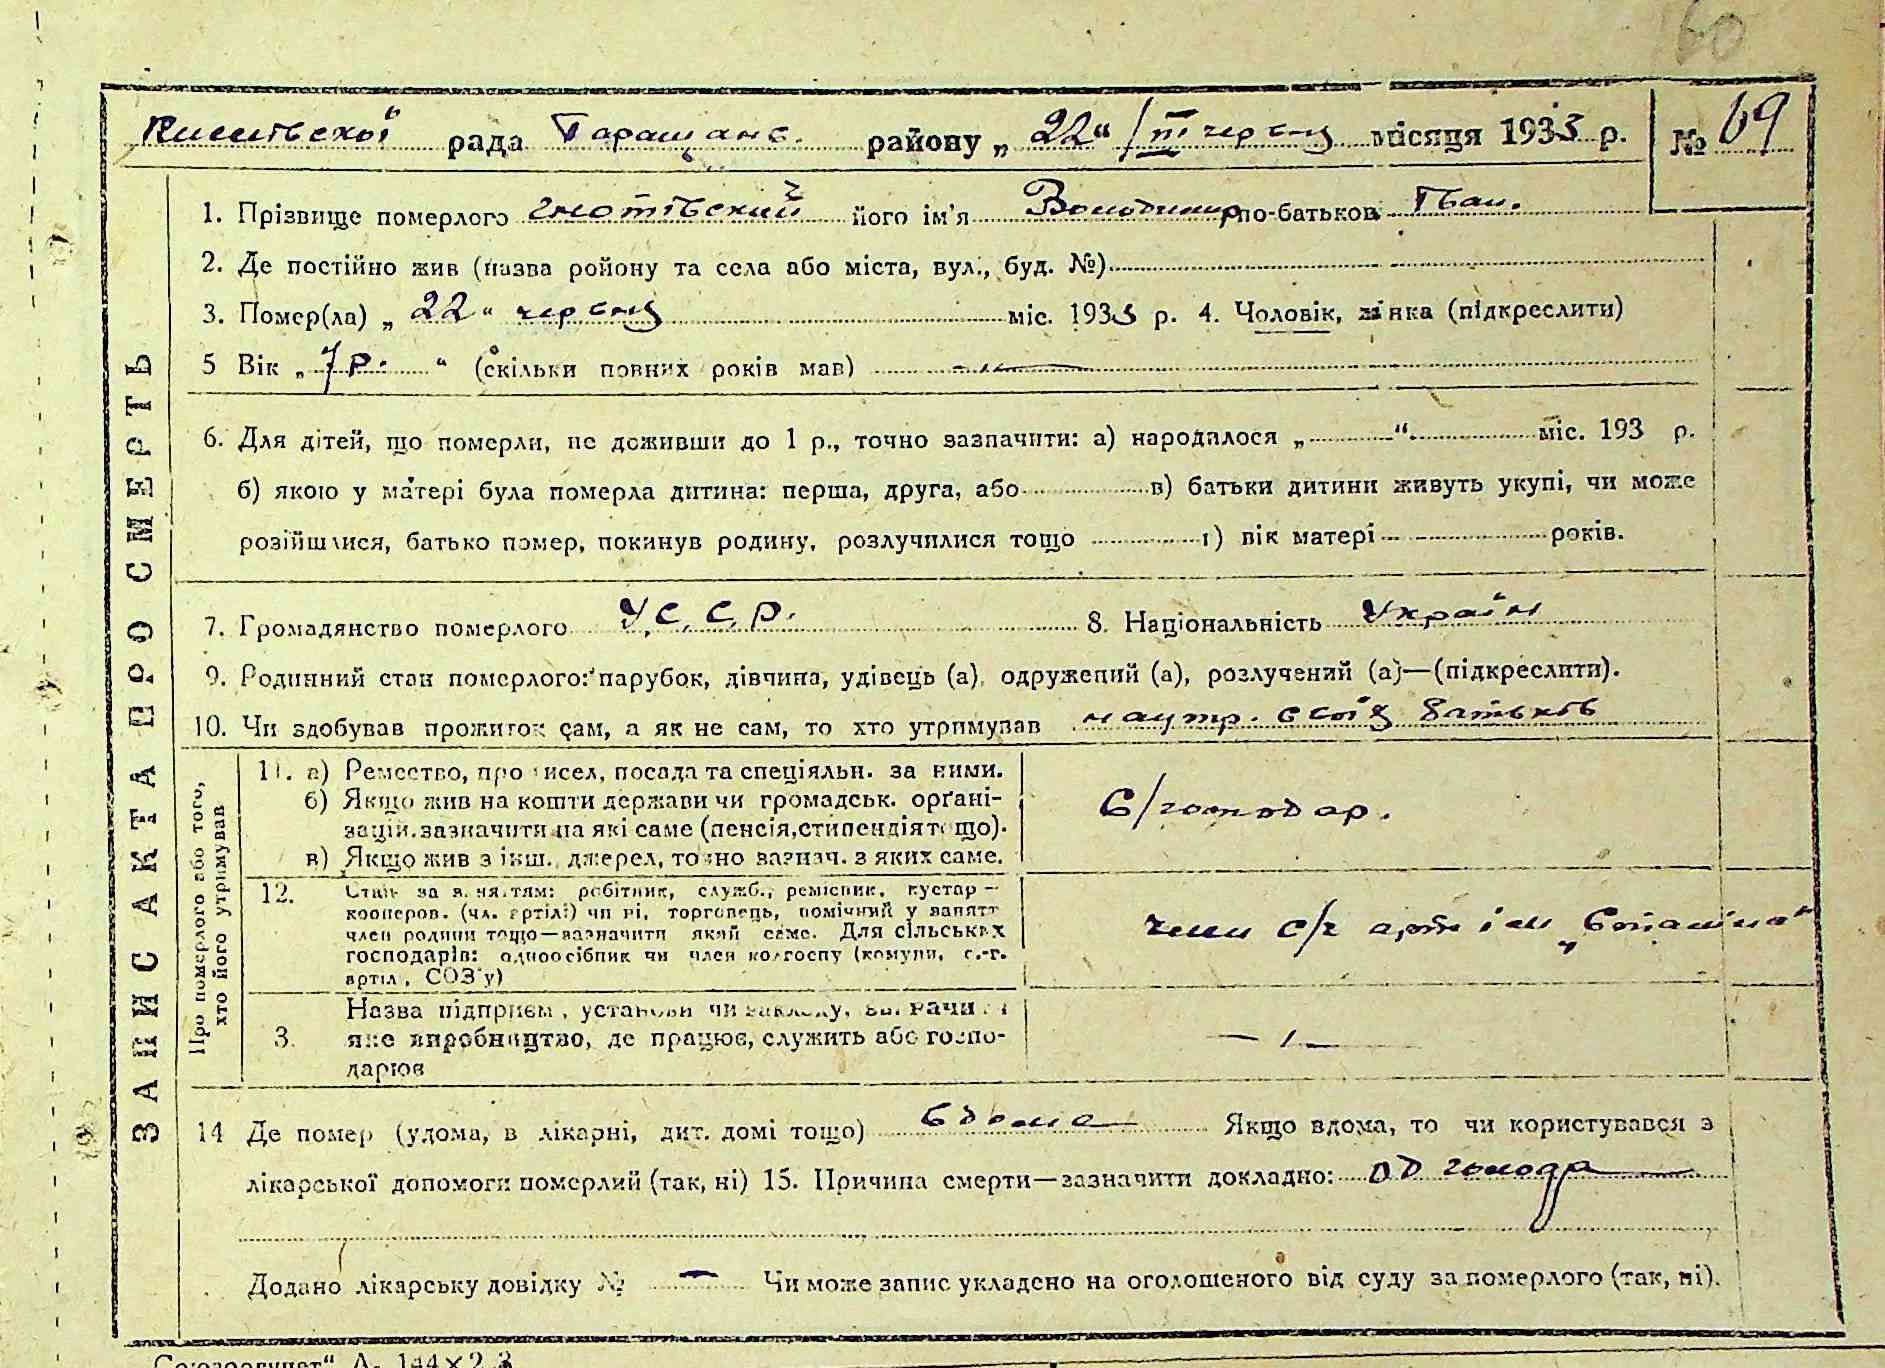 60
рада Таращанс. району „ 22 “ / III червня місяця 1933 р. № 69
ЗАПИС АКТА ПРО СМЕРТЬ
1. Прізвище померлого його ім'я Володимир по-батькові Іван.
2. Де постійно жив (назва ройону та села або міста, вул., буд. №)
3. Помер(ла) „ 22 “ червня міс. 1933 р. 4. Чоловік, жінка (підкреслити)
5 Вік „ 7 р. “ (скільки повних років мав) — „ —
6. Для дітей, що померли, не доживши до 1 р., точно зазначити: а) народилося „ “ міс. 193 р.
б) якою у матері була померла дитина: перша, друга, або в) батьки дитини живуть укупі, чи може
розійшлися, батько помер, покинув родину, розлучилися тощо г) вік матері років.
7. Громадянство померлого У.С.С.Р. 8. Національність Україн
9. Родинний стан померлого: парубок, дівчина, удівець (а), одружений (а), розлучений (а)—(підкреслити).
10. Чи здобував прожиток сам, а як не сам, то хто утримував на утр. своїх батьків
Про померлого або того,
хто його утримував
11. а) Ремество, промисел, посада та спеціяльн. за ними.
б) Якщо жив на кошти держави чи громадськ. орґані-
зацій, зазначити на які саме (пенсія, стипендія тощо).
в) Якщо жив з інш. джерел, точно зазнач. з яких саме.
С/господар.
12. Стан за заняттям: робітник, служб., ремісник, кустар —
кооперов. (чл. артілі) чи ні, торговець, помічний у занятт
член родини тощо—зазначити який саме. Для сільських
господарів: одноосібник чи член колгоспу (комуни, с.-г.
артіл., СОЗ'у)
член с/г арт. ім.
3. Назва підприєм., установи чи закладу, визначити
яке виробництво, де працює, служить або госпо-
дарює
— „ —
14 Де помер (удома, в лікарні, дит. домі тощо) вдома Якщо вдома, то чи користувався з
лікарської допомоги померлий (так, ні) 15. Причина смерти—зазначити докладно: од голода
Додано лікарську довідку № — Чи може запис укладено на оголошеного від суду за померлого (так, ні).